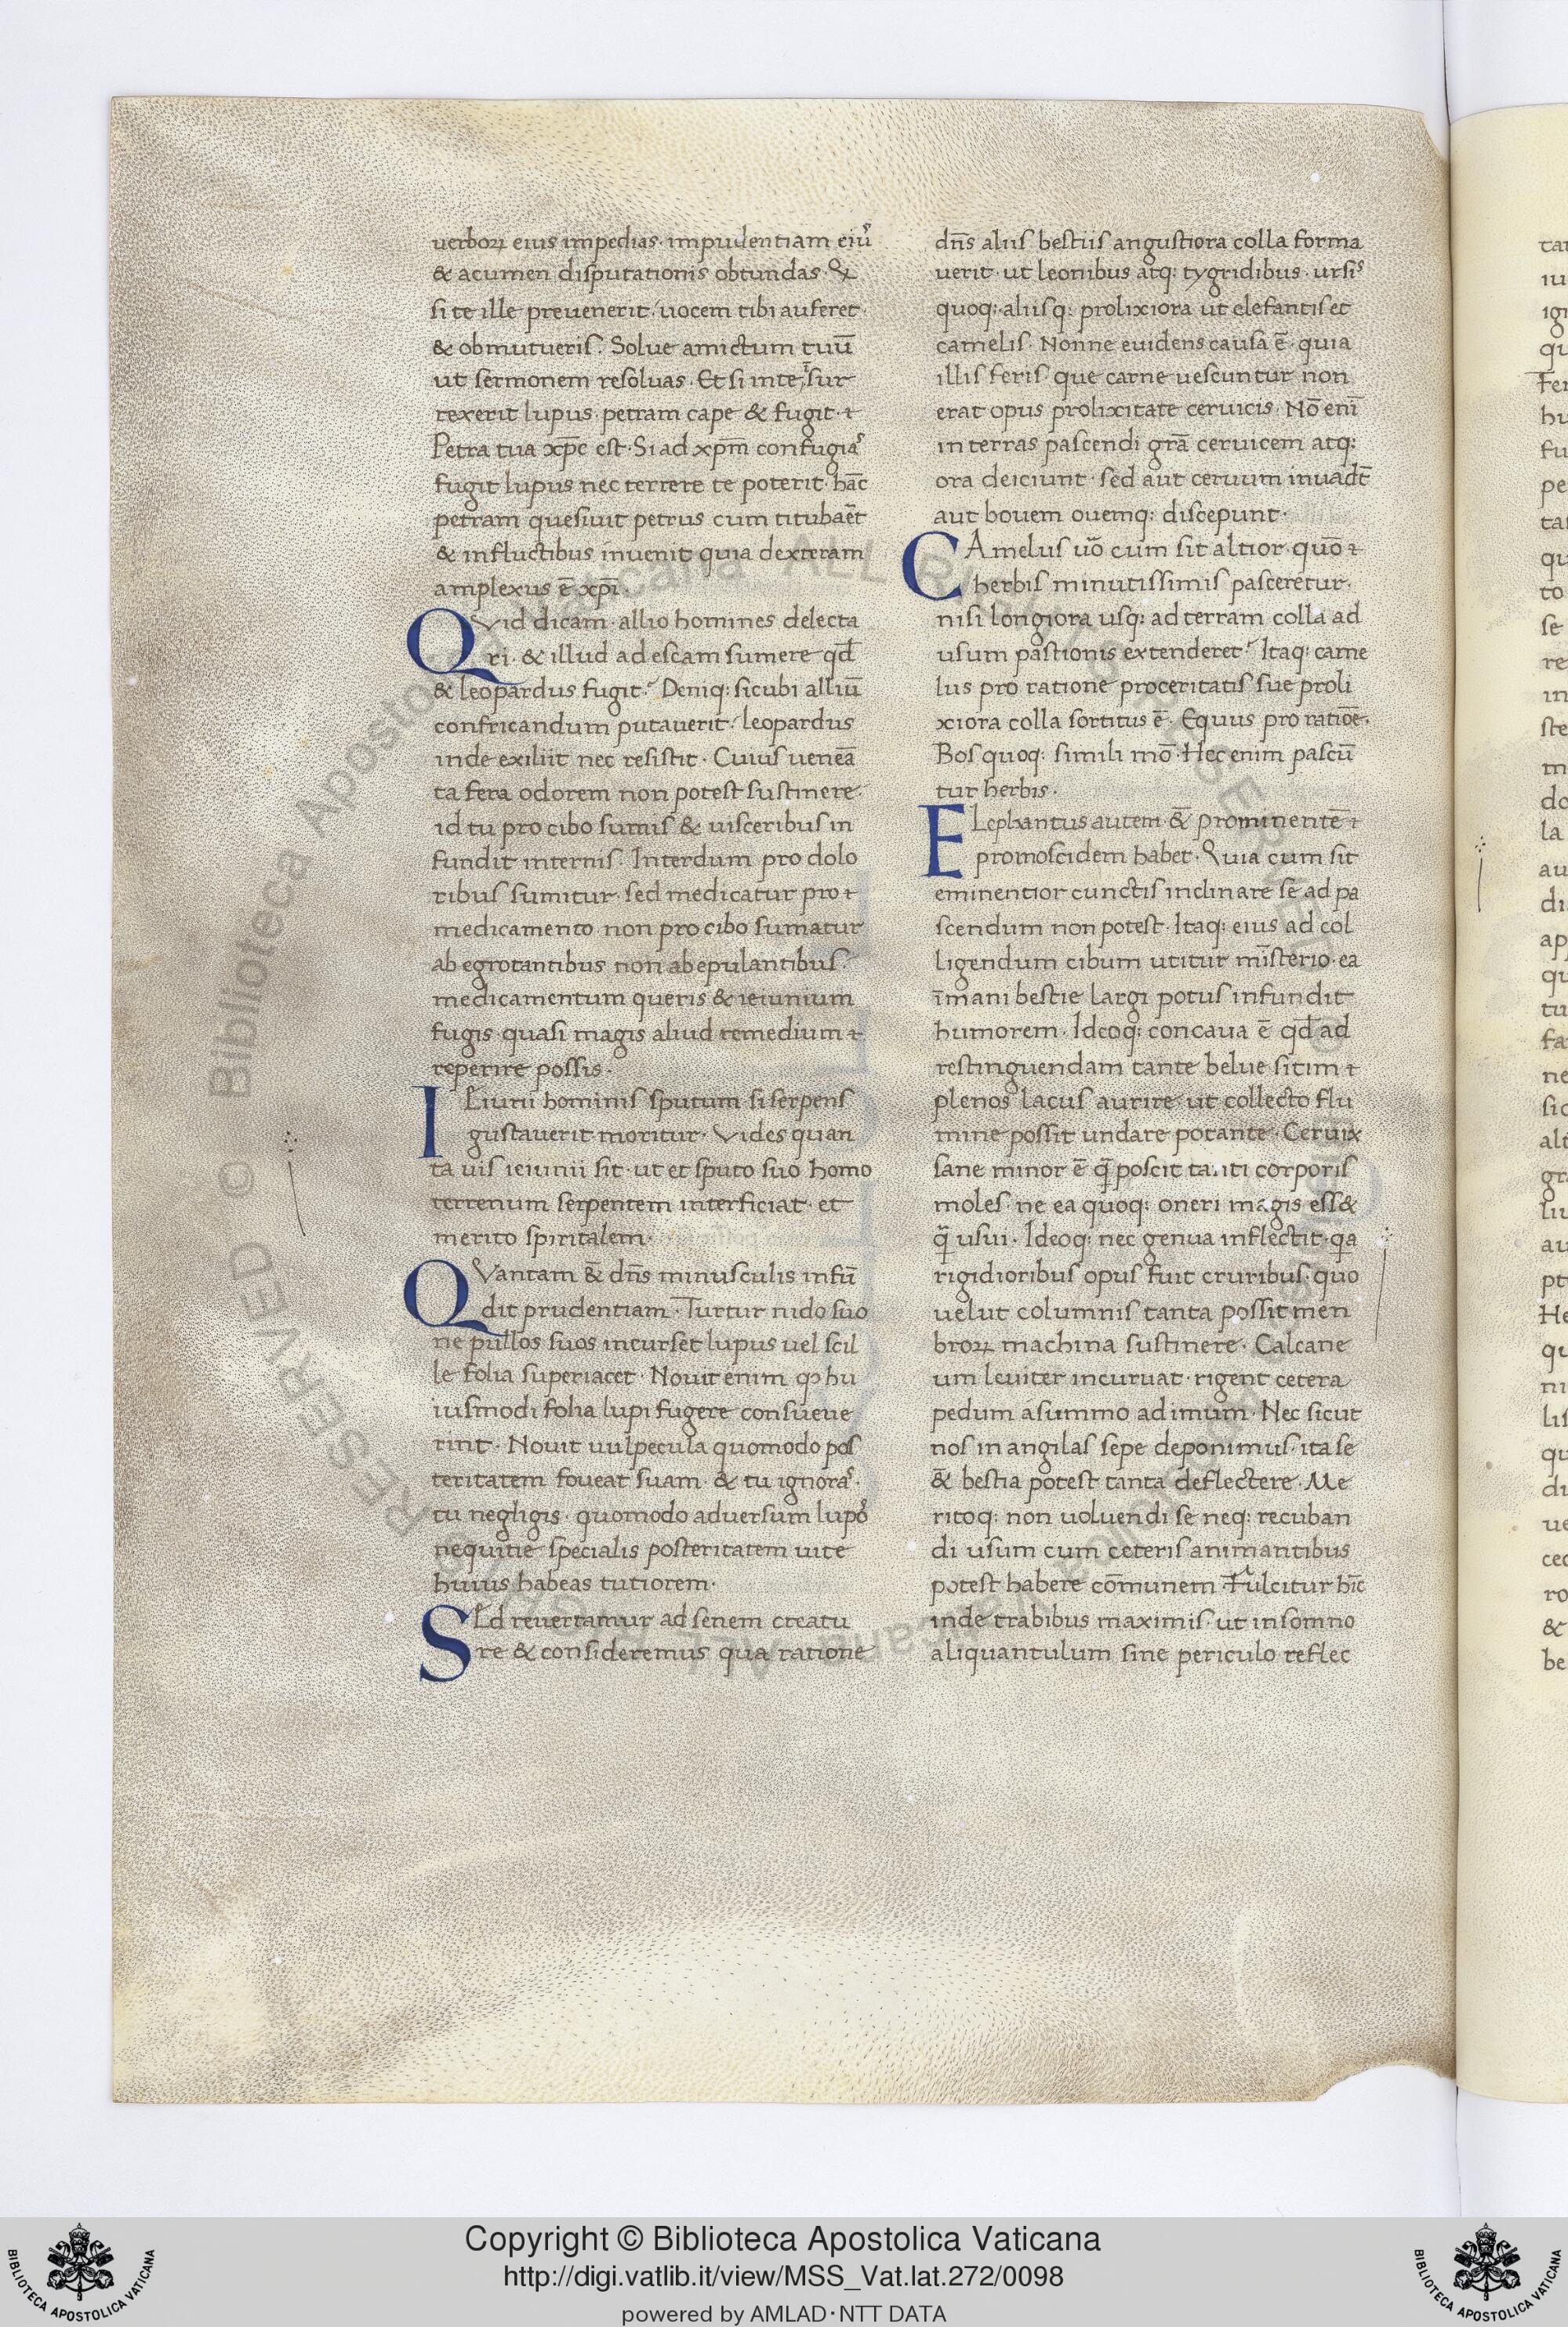 uerboꝝ eius impedias· impudentiam eiuˢ
& acumen disputationis obtundas· Q̇
si te ille preuenerit· uocem tibi auferet·
& obmutueris· Solue amictum tuū
ut sermonem resoluas· Et si in te īsur
rexerit lupus· petram cape & fugit·
Petra tua xp̄c est· Si ad xp̄m confugiaˢ
fugit lupus nec terrere te poterit· hāc
petram quesiuit petrus cum titubaēt
& in fluctibus inuenit quia dexteram
amplexus ē xp̄i·
QVid dicam· allio homines delecta
ri· & illud ad escam sumere qd̄
& leopardus fugit? Deniq: sicubi alliū
confricandum putauerit· leopardus
inde exiliit nec resistit· Cuius uenēa
ta fera odorem non potest sustinere·
id tu pro cibo sumis & uisceribus in
fundit internis· Interdum pro dolo
ribus sumitur· sed medicatur pro
medicamento non pro cibo sumatur
ab egrotantibus non ab epulantibus?
medicamentum queris & ieiunium
fugis· quasi magis aliud remedium
reperire possis·
IEiunii hominis sputum si serpens
gustauerit moritur· Vides quan
ta uis ieiunii sit· ut et sputo suo homo
terrenum serpentem interficiat· et
merito spiritalem·
QVantam &̄ dn̄s minusculis infū
dit prudentiam· Turtur nido suo
ne pullos suos incurset lupus uel scil
le folia superiacet· Nouit enim ꝙ hu
iusmodi folia lupi fugere consueue
rint· Nouit uulpecula quomodo pos
teritatem foueat suam· & tu ignoraˢ·
tu negligis· quomodo aduersum lupoˢ
nequitie specialis posteritatem uite
huius habeas tutiorem·
SEd reuertamur ad senem creatu
re & consideremus qua ratione
dn̄s aliis bestiis angustiora colla forma
uerit· ut leonibus atq: tygridibus· ursiˢ
quoq:· aliisq: prolixiora ut elefantis et
camelis· Nonne euidens causa ē· quia
illis feris· que carne uescuntur non
erat opus prolixitate ceruicis· Nō eni̅
in terras pascendi grā ceruicem atq:
ora deiciunt· sed aut ceruum inuadt̄
aut bouem ouemq: discepunt·
CAmelus uō cum sit altior· quō
herbis minutissimis pasceretur·
nisi longiora usq: ad terram colla ad
usum pastionis extenderet? Itaq: came
lus pro ratione proceritatis sue proli
xiora colla sortitus ē· Equus pro ratiōe·
Bos quoq: simili mō· Hec enim pascū
tur herbis·
ELephantus autem &̄ prominentē
promoscidem habet· Quia cum sit
eminentior cunctis inclinare se ad pa
scendum non potest· Itaq: eius ad col
ligendum cibum utitur mīsterio· ea
īmani bestie largi potus infundit
humorem· Ideoq: concaua ē qd̄ ad
restinguendam tante belue sitim
plenos lacus aurire· ut collecto flu
mine possit undare potante· Ceruix
sane minor ē q̄ poscit tanti corporis
moles· ne ea quoq: oneri magis ess&
q̄ usui· Ideoq: nec genua inflectit· q̄a
rigidioribus opus fuit cruribus· quo
uelut columnis tanta possit men
broꝝ machina sustinere· Calcane
um leuiter incuruat· rigent cetera
pedum a summo ad imum· Nec sicut
nos in angilas sepe deponimus· ita se
&̄ bestia potest tanta deflectere· Me
ritoq: non uoluendi se neq: recuban
di usum cum ceteris animantibus
potest habere cōmunem· Fulcitur hīc
inde trabibus maximis· ut in somno
aliquantulum sine periculo reflec
Copyright © Biblioteca Apostolica Vaticana
http://digi.vatlib.it/view/MSS_Vat.lat.272/0098
powered by AMLAD·NTT DATA
BIBLIOTECA APOSTOLICA VATICANA
BIBLIOTECA APOSTOLICA VATICANA